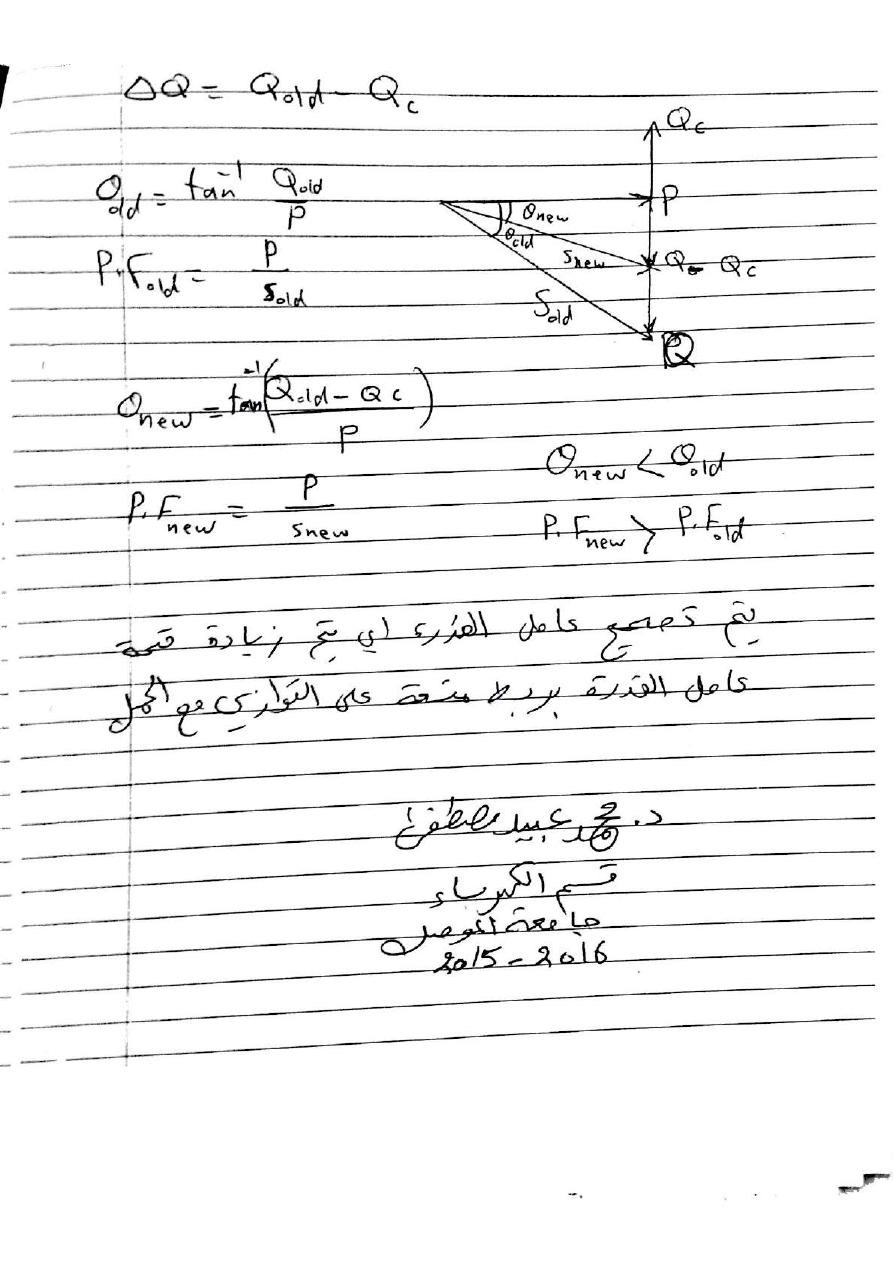 ΔQ = Qold - Qc
Qc
θold = tan⁻¹ Qold / P
P
θnew
θold
P.Fold = P / Sold
Snew
Q - Qc
Sold
Q
θnew = tan⁻¹(Qold - Qc / P)
θnew < θold
P.Fnew = P / Snew
P.Fnew > P.Fold
يتم تصحيح عامل القدرة اي يتم زيادة قيمة
عامل القدرة بربط متسعة على التوازي مع الحمل
د. محمد عبيد مصطفى
قسم الكهرباء
جامعة الموصل
2015 - 2016